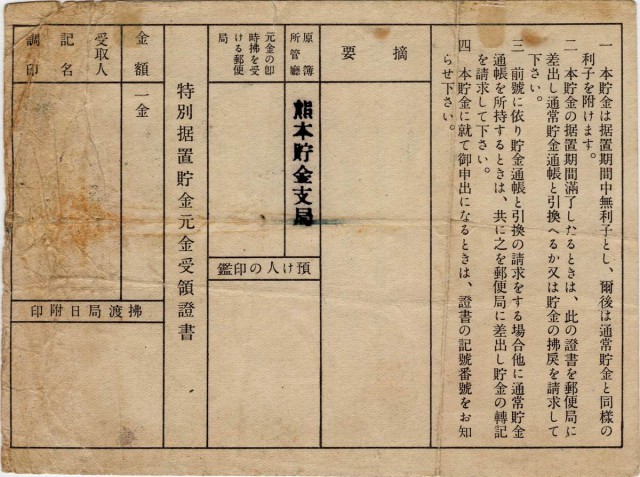 一 本貯金は据置期間中無利子とし、爾後は通常貯金と同樣の
利子を附けます。
二 本貯金の据置期間滿了したるときは、此の證書を郵便局に
差出し通常貯金通帳と引換へるか又は貯金の拂戾を請求して
下さい。
三 前號に依り貯金通帳と引換の請求をする場合他に通常貯金
通帳を所持するときは、共に之を郵便局に差出し貯金の轉記
を請求して下さい。
四 本貯金に就て御申出になるときは、證書の記號番號をお知
らせ下さい。
摘要
原簿
所管廳
熊本貯金支局
元金の卽
時拂を受
ける郵便
局
預け人の印鑑
特別据置貯金元金受領證書
金額
一金
受取人
記名
調印
拂渡局日附印